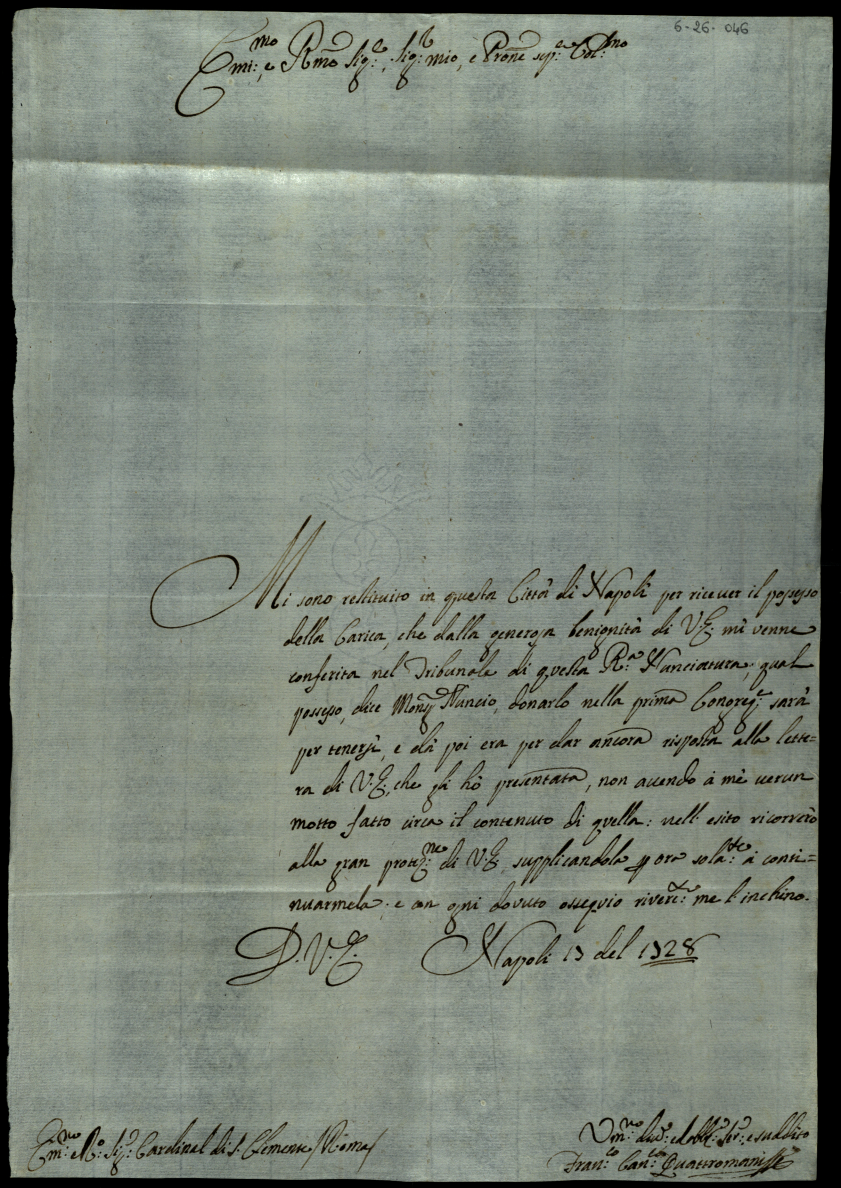 6-26-046
Emi:mo, e Rmo Sig:re, Sig:r mio, e Prone sep:re Col:mo
Mi sono restituito in questa Città di Napoli per riceuer il possesso
della Carica, che dalla generosa benignità di V.E. mi venne
conferita nel Tribunale di questa R:a Nunciatura; qual
possesso, dice Mons:r Nuncio, donarlo nella prima Congreg:e sarà
per tenersi, e dà poi era per dar ancora risposta alla lette=
ra di V.E., che gli hò presentata, non auendo à mè uerun
motto fatto circa il contenuto di quella: nell' esito ricorrerò
alla gran protez:ne di V.E. supplicandola p ora sola:te à conti=
nuarmela; e con ogni dovuto ossequio river:te me l'inchino.
D. V. E. Napoli 13 del 1728
Em:mo e R:o Sig:r Cardinal di S. Clemente /Roma/
Vm:mo e suddito
Fran:co Can:co Quattromani